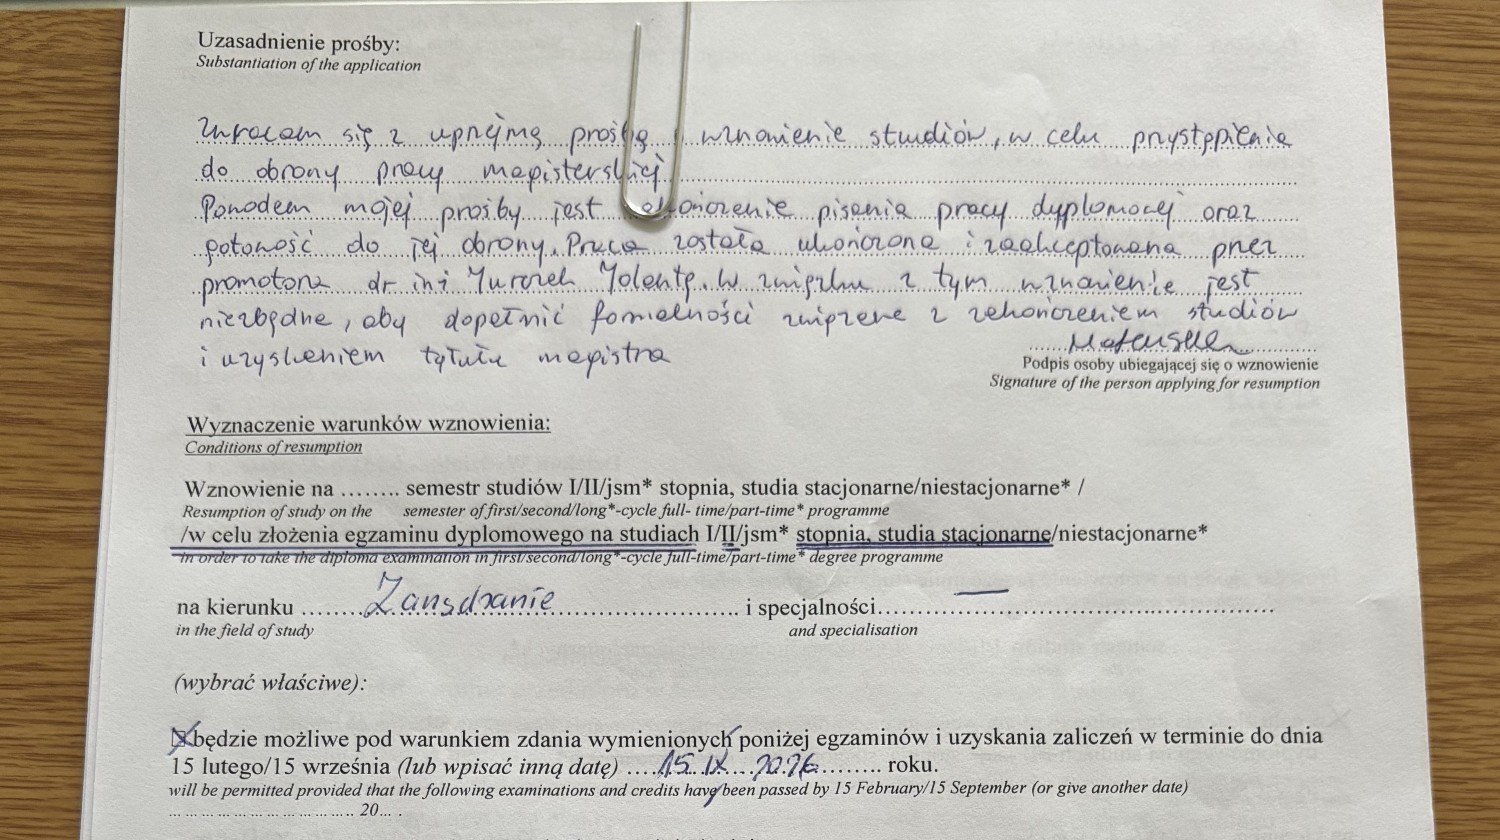 Uzasadnienie prośby:
Substantiation of the application
Zwracam się z uprzejmą prośbą o wznowienie studiów, w celu przystąpienia
do obrony pracy magisterskiej
Powodem mojej prośby jest zakończenie pisania pracy dyplomowej oraz
gotowość do jej obrony. Praca została ukończona i zaakceptowana przez
promotora dr inż Jolantę. W związku z tym wznowienie jest
niezbędne, aby dopełnić formalności związane z zakończeniem studiów
i uzyskaniem tytułu magistra
Podpis osoby ubiegającej się o wznowienie
Signature of the person applying for resumption
Wyznaczenie warunków wznowienia:
Conditions of resumption
Wznowienie na ........ semestr studiów I/II/jsm* stopnia, studia stacjonarne/niestacjonarne* /
Resumption of study on the semester of first/second/long*-cycle full- time/part-time* programme
/w celu złożenia egzaminu dyplomowego na studiach I/II/jsm* stopnia, studia stacjonarne/niestacjonarne*
in order to take the diploma examination in first/second/long*-cycle full-time/part-time* degree programme
na kierunku Zarządzanie i specjalności —
in the field of study and specialisation
(wybrać właściwe):
☒ będzie możliwe pod warunkiem zdania wymienionych poniżej egzaminów i uzyskania zaliczeń w terminie do dnia
15 lutego/15 września (lub wpisać inną datę) 15 IX 2026 roku.
will be permitted provided that the following examinations and credits have been passed by 15 February/15 September (or give another date)
.................... 20... .